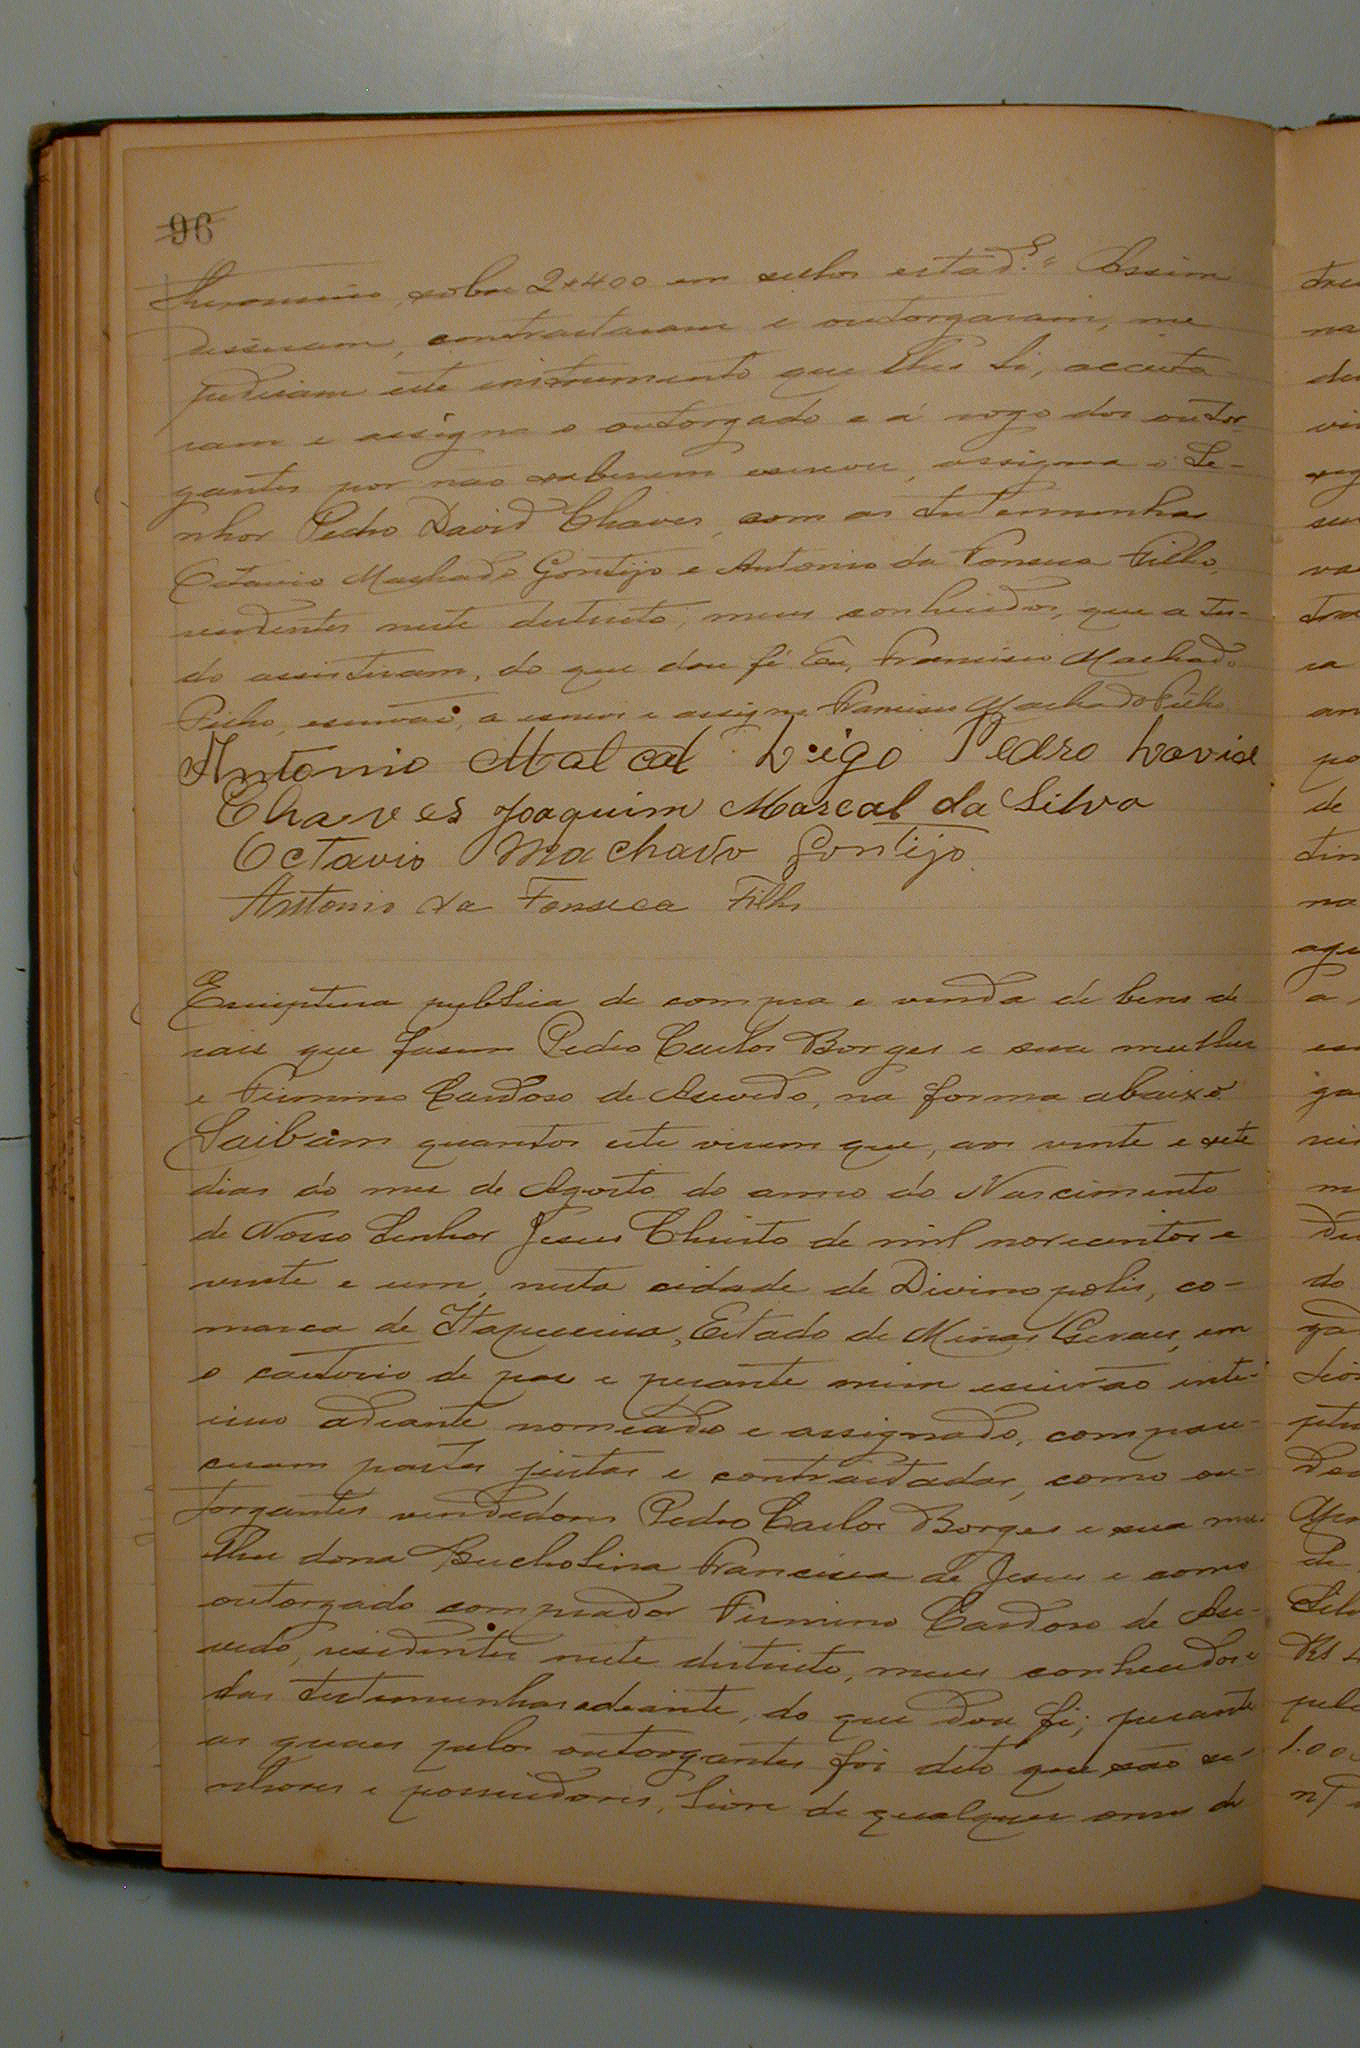 96
sobre 2$400 em sellos estad.es Assim
disseram, contractaram e outorgaram, me
pediram este instrumento que lhes li, acceita-
ram e assigna o outorgado e á rogo dos outor-
gantes por não saberem escrever, assigna o Se-
nhor Pedro David Chaves, com as testemunhas
Octavio Machado Gontijo e Antonio da Fonseca Filho,
residentes neste districto, meus conhecidos, que a tu-
do assistiram, do que dou fé. Eu, Francisco Machado
Filho, escrivão, a escrevi e assigno Francisco Machado Filho
Antonio Malcal Pedro David
Chaves Joaquim Marcal da Silva
Octavio Machado Gontijo
Antonio da Fonseca Filho
Escriptura publica de compra e venda de bens de
raiz que fasem Pedro Carlos Borges e sua mulher
e Firmino Cardoso de Asevedo, na forma abaixo
Saibam quantos este virem que, aos vinte e sete
dias do mez de Agosto do anno do Nascimento
de Nosso Senhor Jesus Christo de mil novecentos e
vinte e um, nesta cidade de Divinopolis, co-
marca de Itapecerica, Estado de Minas Geraes, em
o cartorio de paz e perante mim escrivão inte-
rino adiante nomeado e assignado, compare-
ceram partes justas e contractadas, como ou-
torgantes vendedores Pedro Carlos Borges e sua mu-
lher dona Francisca de Jesus e como
outorgado comprador Firmino Cardoso de Ase-
vedo, residentes neste districto, meus conhecidos e
das testemunhas adeante, do que dou fé; perante
as quaes pelos outorgantes foi dito que são se-
nhores e possuidores, livre de qualquer onus de